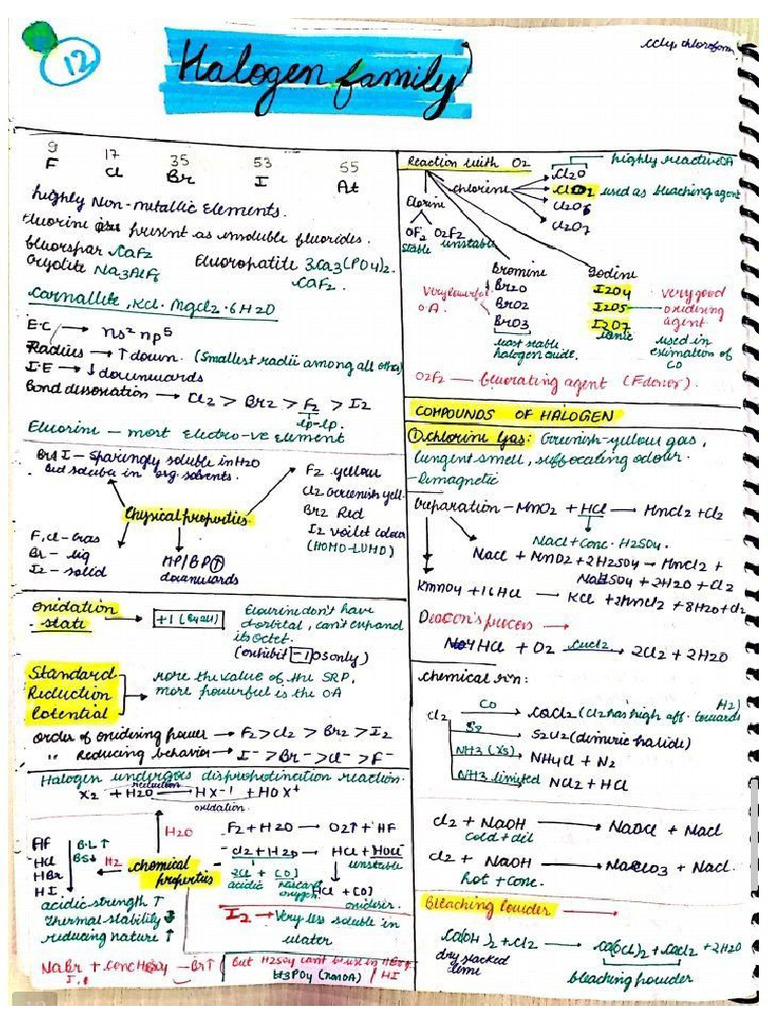 12
Halogen family
ccl4, chloroform
9 17 35 53 55
F Cl Br I At
highly Non-metallic Elements.
Fluorine is present as insoluble fluorides.
fluorspar CaF2
Cryolite Na3AlF6
Fluoropatite 3Ca3(PO4)2.
CaF2.
Carnallite, KCl. MgCl2. 6H2O
E.C → ns2 np5
Radius → ↑ down. (Smallest radii among all other)
I.E → ↓ downwards
Bond dissosation → Cl2 > Br2 > F2 > I2
lp-lp.
Fluorine - most electro-ve element
Br I - Sparingly soluble in H2O
but soluble in org. solvents.
Physical properties
F, Cl - Gas
Br - liq
I2 - solid
MP/BP ↑
downwards
F2 yellow
Cl2 Greenish yell.
Br2 Red
I2 voilet colour
(HOMO-LUMO)
Oxidation
state
→ +1 (
Flourine don't have
d orbital, can't expand
its octet.
(exhibit -1 OS only)
Standard
Reduction
Potential
more the value of the SRP,
more powerful is the OA
order of oxidising power → F2 > Cl2 > Br2 > I2
" Reducing behavior → I- > Br- > Cl- > F-
Halogen undergoes disproportination reaction.
reduction
X2 + H2O → HX-1 + HOX+
oxidation
H2O
HF
HCl
HBr
HI
B.L ↑
BS↓
H2
chemical
properties
acidic strength ↑
Thermal stability ↓
reducing nature ↑
F2 + H2O → O2↑ + HF
Cl2 + H2O → HCl + HOCl
unstable
HCl + [O]
acidic nascent
oxygen.
HCl + [O]
oxidiser.
I2 → Very less soluble in
water
NaBr + conc H2SO4 → Br↑
I
but H2SO4 can't be used in
H3PO4 (non OA) / HI
Reaction with O2
Florine
OF2 O2F2
stable unstable
chlorine
Cl2O
ClO2 used as bleaching agent
Cl2O6
Cl2O7
highly reactive OA
Bromine
Br2O
BrO2
BrO3
Very powerful
OA
least stable
halogen oxide.
Iodine
I2O4
I2O5
I2O7
ionic
Very good
oxidising
agent
used in
estimation of
CO
O2F2 — fluorating agent (F donor).
COMPOUNDS OF HALOGEN
① chlorine Gas: Greenish-yellow gas,
pungent smell, suffocating odour.
- dimagnetic
Preparation - MnO2 + HCl → MnCl2 + Cl2
NaCl + Conc. H2SO4.
NaCl + MnO2 + 2H2SO4 → MnCl2 +
NaHSO4 + 2H2O + Cl2
KmnO4 + 16HCl → KCl + 2MnCl2 + 8H2O + Cl2
Deacon's process →
4HCl + O2 CuCl2→ 2Cl2 + 2H2O
chemical rxn:
Cl2
CO → COCl2 (Cl2 has high aff. towards
H2)
S8 → S2Cl2 (dimeric halide)
NH3 (XS) → NH4Cl + N2
NH3 limited → NCl3 + HCl
Cl2 + NaOH → NaOCl + NaCl
cold + dil
Cl2 + NaOH → NaClO3 + NaCl.
hot + conc.
Bleaching Powder →
Ca(OH)2 + Cl2 → Ca(OCl)2 + CaCl2 + 2H2O
dry slacked
lime
bleaching powder